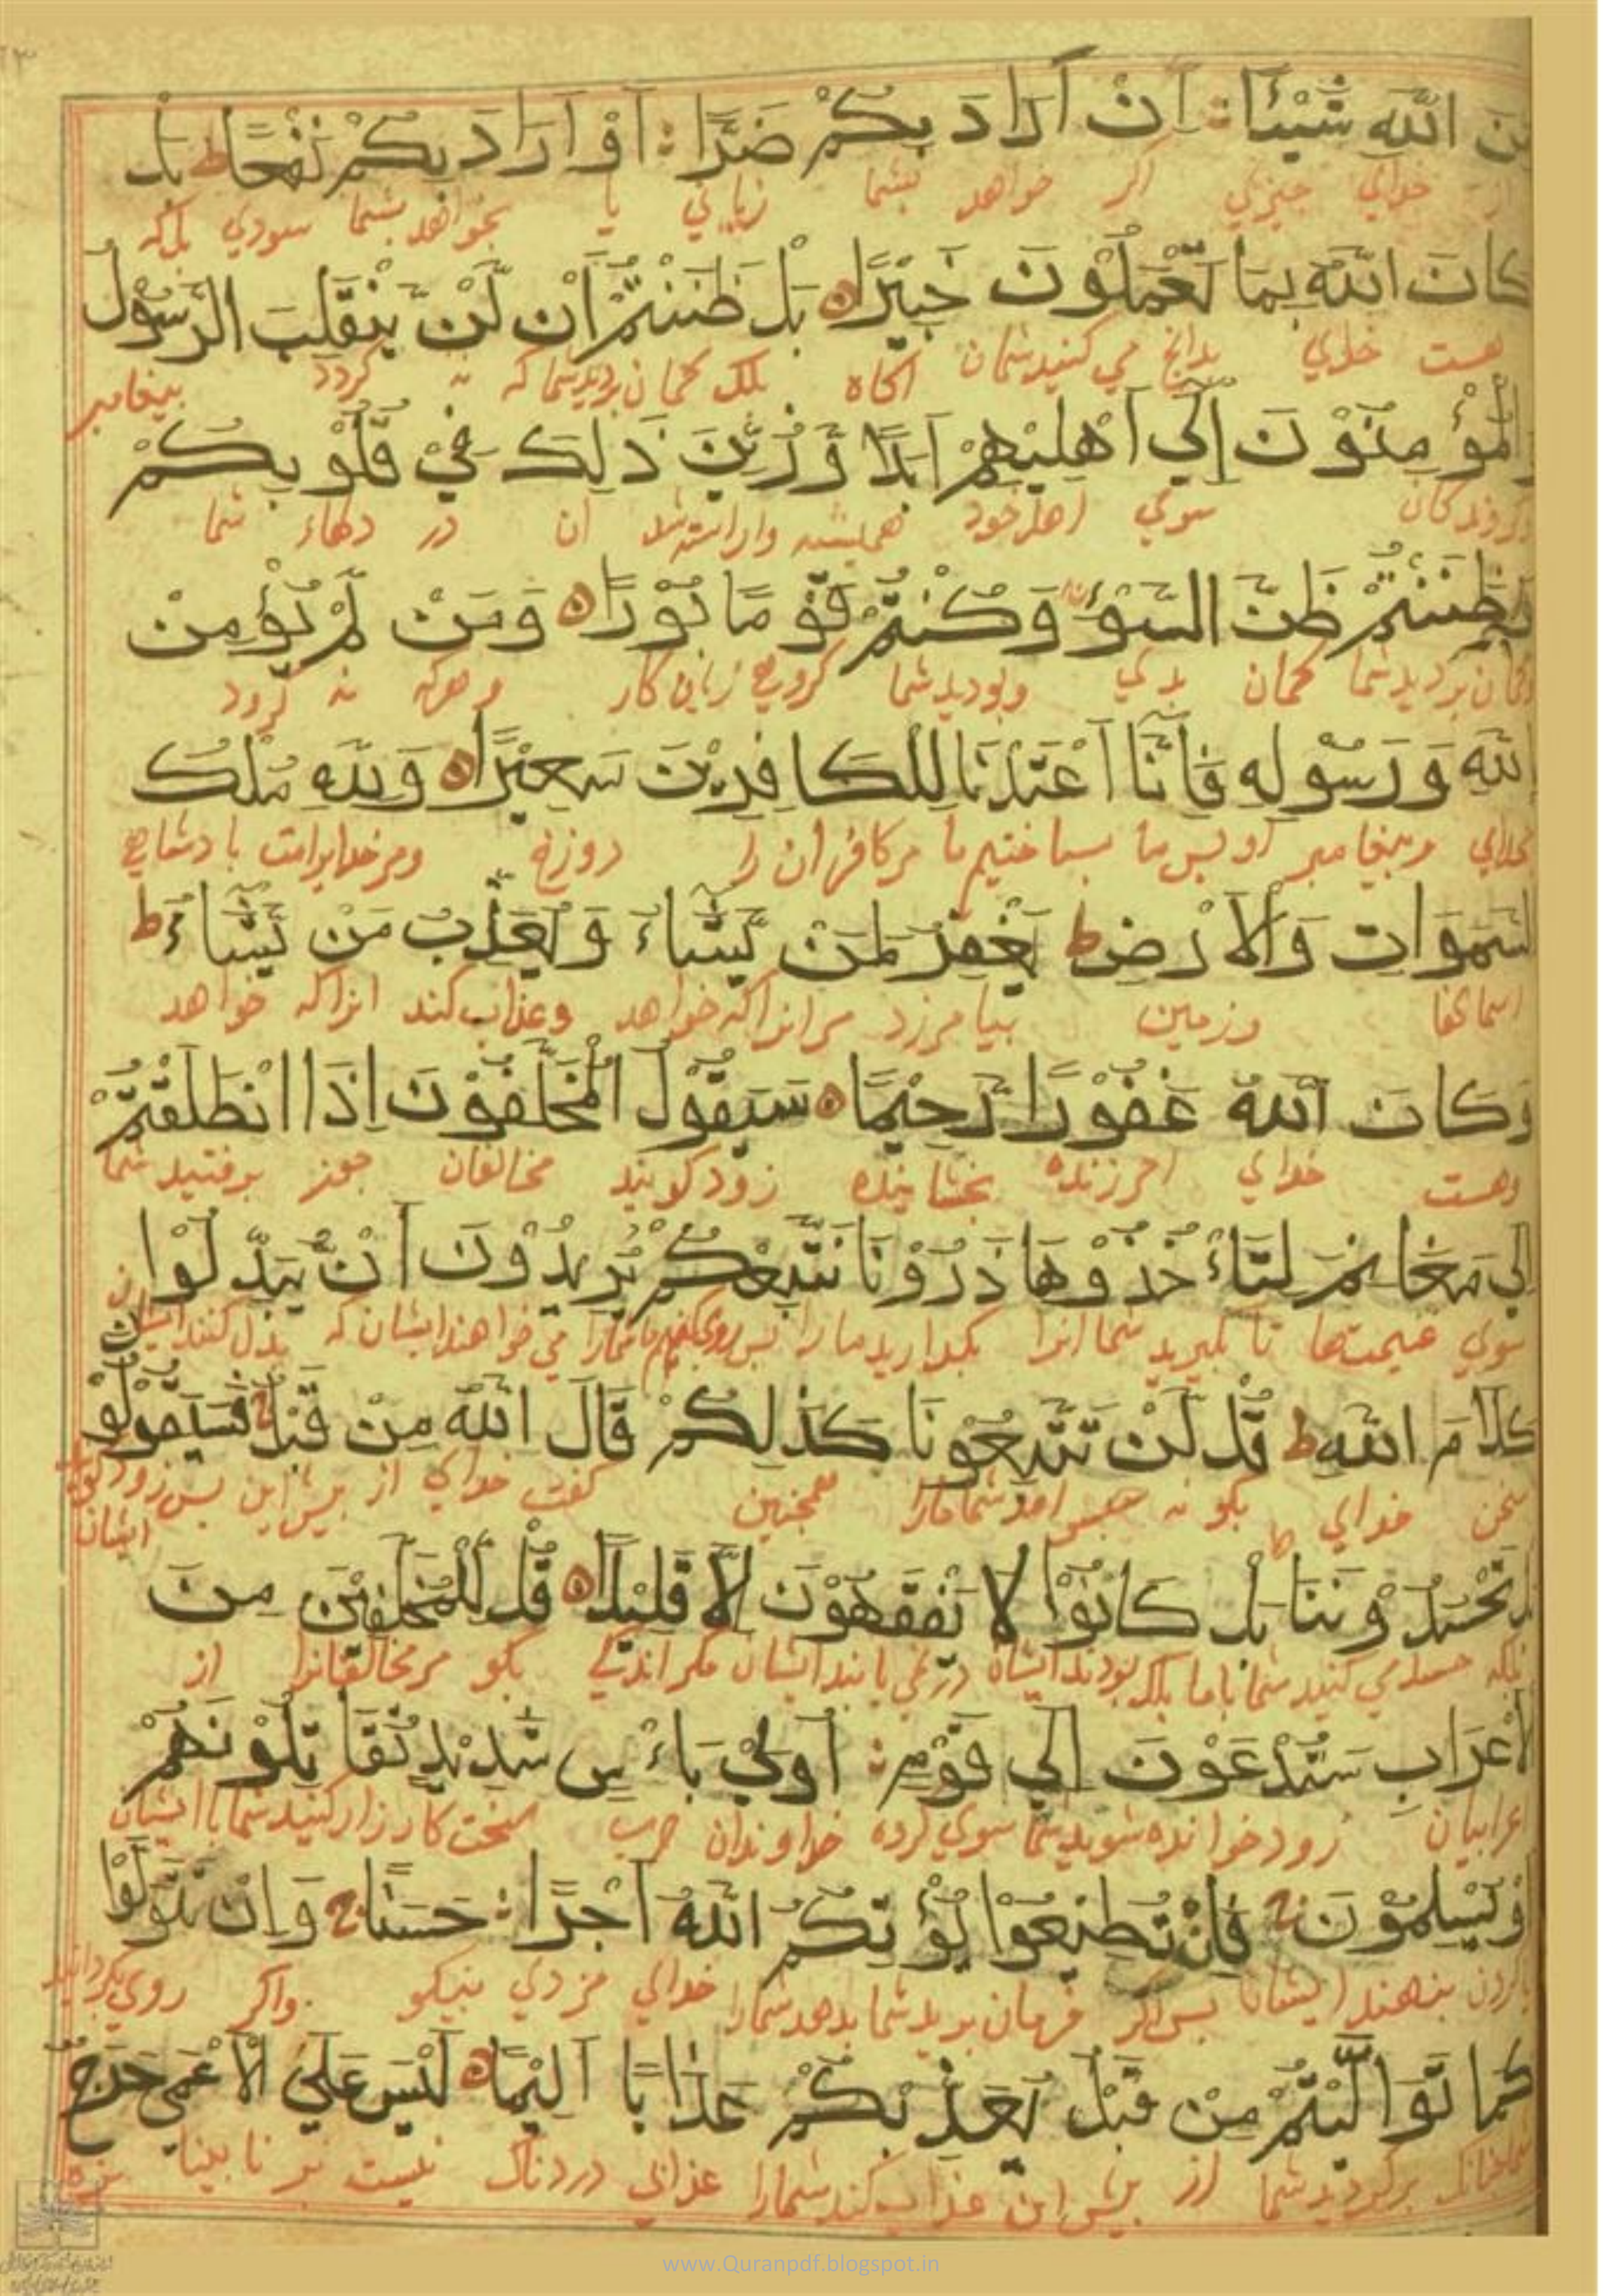 مِنَ اللّٰهِ شَيْئًا اِنْ اَرَادَ بِكُمْ ضَرًّا اَوْ اَرَادَ بِكُمْ نَفْعًا ط بَلْ
از خدای چیزی اکر خواهد بشما زیانی یا بخواهد بشما سودی بلکه
كَانَ اللّٰهُ بِمَا تَعْمَلُوْنَ خَبِيْرًا ه بَلْ ظَنَنْتُمْ اَنْ لَنْ يَنْقَلِبَ الرَّسُوْلُ
هست خدای بدانچ می کنید شمان اکاه بلک کمان بردید شما که نه کردد بیغامبر
وَالْمُؤْمِنُوْنَ اِلَي اَهْلِيْهِمْ اَبَدًا وَزُيِّنَ ذَلِكَ فِيْ قُلُوْبِكُمْ
سوی اهل خود همیشه واراسته شد ان در دلهاء شما
وَظَنَنْتُمْ ظَنَّ السَّوْءِ وَكُنْتُمْ قَوْمًا بُوْرًا ه وَمَنْ لَمْ يُؤْمِنْ
وکمان بردید شما کمان بدی وبودید شما کروهی زیان کار وهرکه نه کرود
بِاللّٰهِ وَرَسُوْلِهِ فَاِنَّا اَعْتَدْنَا لِلْكَافِرِيْنَ سَعِيْرًا ه وَلِلّٰهِ مُلْكُ
بخدای وبیغامبر او بس ما بساختیم ما مرکافران را دوزخ ومرخدایراست بادشاهی
السَّمَوَاتِ وَالْاَرْضِ ط يَغْفِرُ لِمَنْ يَشَاءُ وَيُعَذِّبُ مَنْ يَشَاءُ ط
اسمانها وزمین بیامرزد مرانراکه خواهد وعذاب کند انراکه خواهد
وَكَانَ اللّٰهُ غَفُوْرًا رَحِيْمًا ه سَيَقُوْلُ الْمُخَلَّفُوْنَ اِذَا انْطَلَقْتُمْ
وهست خدای امرزنده بخشاینده زود کویند مخالفان جون برفتید شما
اِلَي مَغَانِمَ لِتَاءْخُذُوْهَا ذَرُوْنَا نَتَّبِعْكُمْ يُرِيْدُوْنَ اَنْ يُبَدِّلُوْا
سوی غنیمت‌ها تا بکیرید شما انرا بکذارید ما را می خواهند ایشان که بدل کنند ایشان
كَلَامَ اللّٰهِ ط قُلْ لَنْ تَتَّبِعُوْنَا كَذَلِكُمْ قَالَ اللّٰهُ مِنْ قَبْلُ فَسَيَقُوْلُوْنَ
سخن خدای بکو نه شما مارا همچنین کفت خدای از بیش این بس زود کویند
ایشان
بَلْ تَحْسُدُوْنَنَا بَلْ كَانُوْا لَا يَفْقَهُوْنَ اِلَّا قَلِيْلًا ه قُلْ لِلْمُخَلَّفِيْنَ مِنَ
بلکه حسد می کنید شما باما بلکه بودند ایشان درنمی یابند ایشان مکر اندکی بکو مرمخالفانرا از
الْاَعْرَابِ سَتُدْعَوْنَ اِلَي قَوْمٍ اُولِيْ بَاءْسٍ شَدِيْدٍ تُقَاتِلُوْنَهُمْ
اعرابیان زود خوانده شوید شما سوی کروه خداوندان حرب سخت کارزار کنید شما با ایشان
اَوْ يُسْلِمُوْنَ فَاِنْ تُطِيْعُوْا يُؤْتِكُمُ اللّٰهُ اَجْرًا حَسَنًا وَاِنْ تَتَوَلَّوْا
کردن بنهند ایشان بس اکر فرمان برید شما بدهد شمارا خدای مزدی نیکو واکر روی بکردانید
كَمَا تَوَلَّيْتُمْ مِنْ قَبْلُ يُعَذِّبْكُمْ عَذَابًا اَلِيْمًا ه لَيْسَ عَلَي الْاَعْمَي حَرَجٌ
برکردید شما از بیش این عذاب کند شمارا عذابی دردناک نیست بر نابینا بزه
www.Quranpdf.blogspot.in